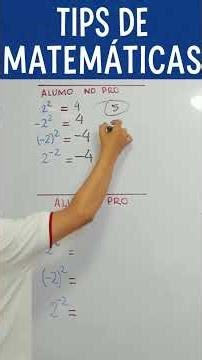 TIPS DE
MATEMÁTICAS
ALUMO NO PRO
2² = 4
-2² = 4
(-2)² = -4
2⁻² = -4
5
ALU PRO
=
(-2)² =
2⁻² =